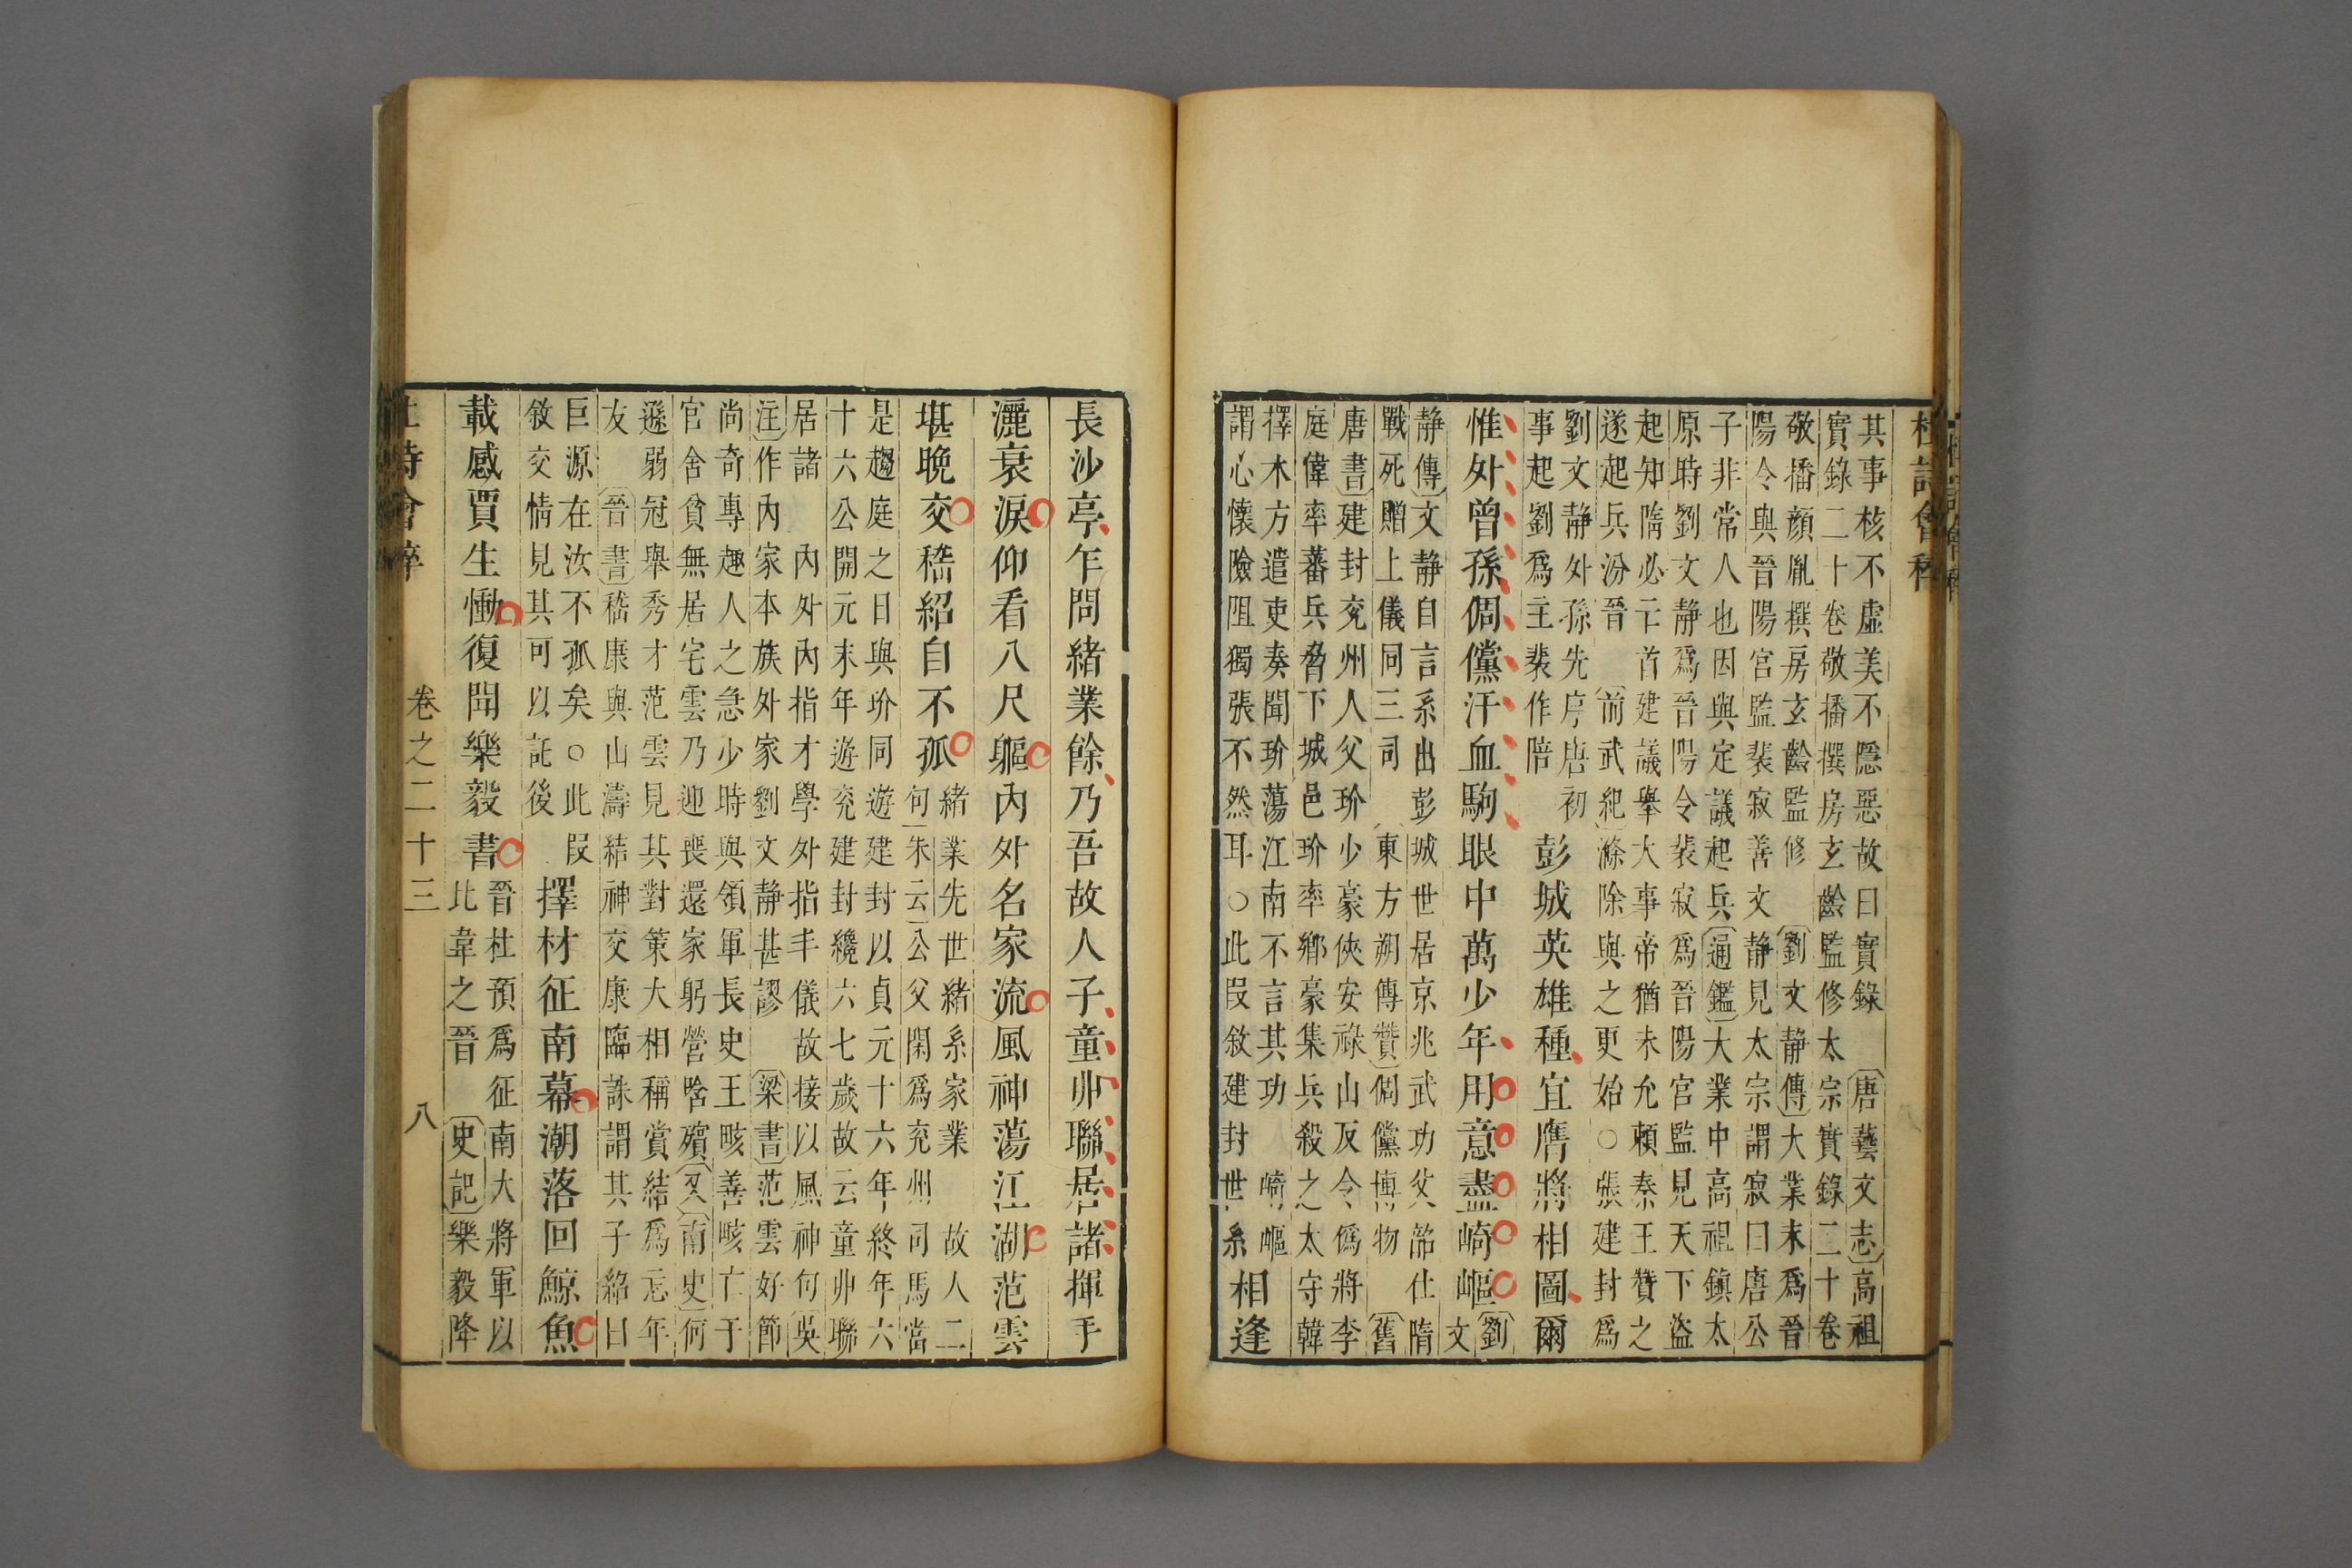 杜詩會稡
其事核不虛美不隱惡故曰實錄 唐藝文志高祖
實錄二十卷敬播撰房玄齡監修太宗實錄二十卷
敬播顏胤撰房玄齡監修 劉文静傳大業末爲晉
陽令與晉陽宮監裴寂善文静見太宗謂寂曰唐公
子非常人也因與定議起兵通鑑大業中高祖鎮太
原時劉文静爲晉陽令裴寂爲晉陽宮監見天下盜
起知隋必亡首建議舉大事帝猶未允賴秦王贊之
遂起兵汾晉 前武紀滌除與之更始○張建封爲
劉文静外孫先序唐初
事起劉爲主裴作陪
彭城英雄種宜膺將相圖爾
惟外曾孫倜儻汗血駒眼中萬少年用意盡崎嶇
劉
文
静傳文静自言系出彭城世居京兆武功父韶仕隋
戰死贈上儀同三司 東方朔傳贊倜儻博物 舊
唐書建封兖州人父玠少豪俠安祿山反令僞將李
庭偉率蕃兵脅下城邑玠率鄉豪集兵殺之太守韓
擇木方遣吏奏聞玠蕩江南不言其功 崎嶇
謂心懷險阻獨張不然耳○此叚敘建封世系
相逢
長沙亭乍問緒業餘乃吾故人子童丱聯居諸揮手
灑衰淚仰看八尺軀內外名家流風神蕩江湖范雲
堪晚交嵇紹自不孤
緒業先世緒系家業 故人二
句朱云公父閑爲兖州司馬當
是趨庭之日與玠同遊建封以貞元十六年終年六
十六公開元末年遊兖建封纔六七歲故云童丱聯
居諸 內外內指才學外指丰儀故接以風神句 吳
注作內家本族外家劉文静甚謬 梁書范雲好節
尚奇專趣人之急少時與領軍長史王畡善畡亡于
官舍貧無居宅雲乃迎喪還家躬營晗殯又南史何
遜弱冠舉秀才范雲見其對策大相稱賞結爲忘年
友 晉書嵇康與山濤結神交康臨誅謂其子紹曰
巨源在汝不孤矣○此叚
敘交情見其可以託後
擇材征南幕潮落回鯨魚
載感賈生慟復聞樂毅書
晉杜預爲征南大將軍以
比韋之晉 史記樂毅降
杜詩會稡 卷之二十三 八